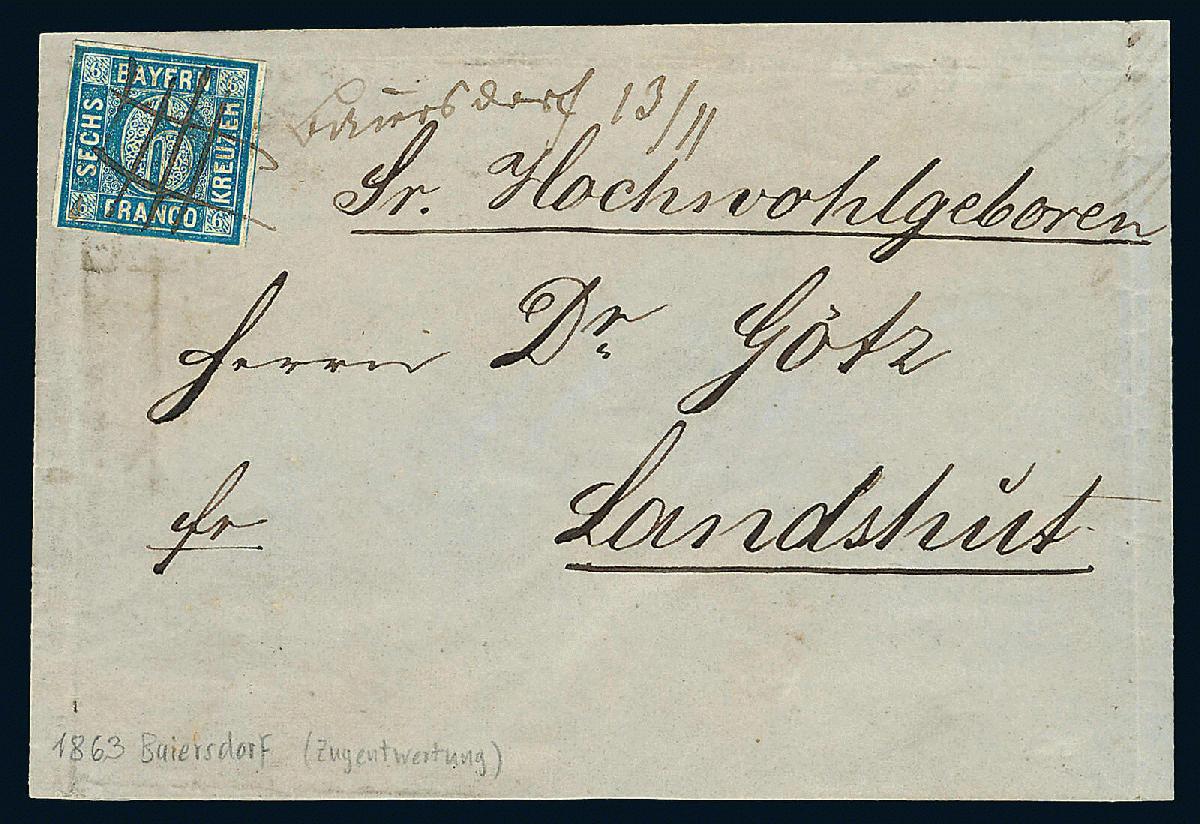 BAYERN
SECHS
KREUZER
FRANCO
6 6 6 6
Baiersdorf 13/11
Sr. Hochwohlgeboren
Herrn Dr. Götz
fr
Landshut
1863 Baiersdorf (Zugentwertung)